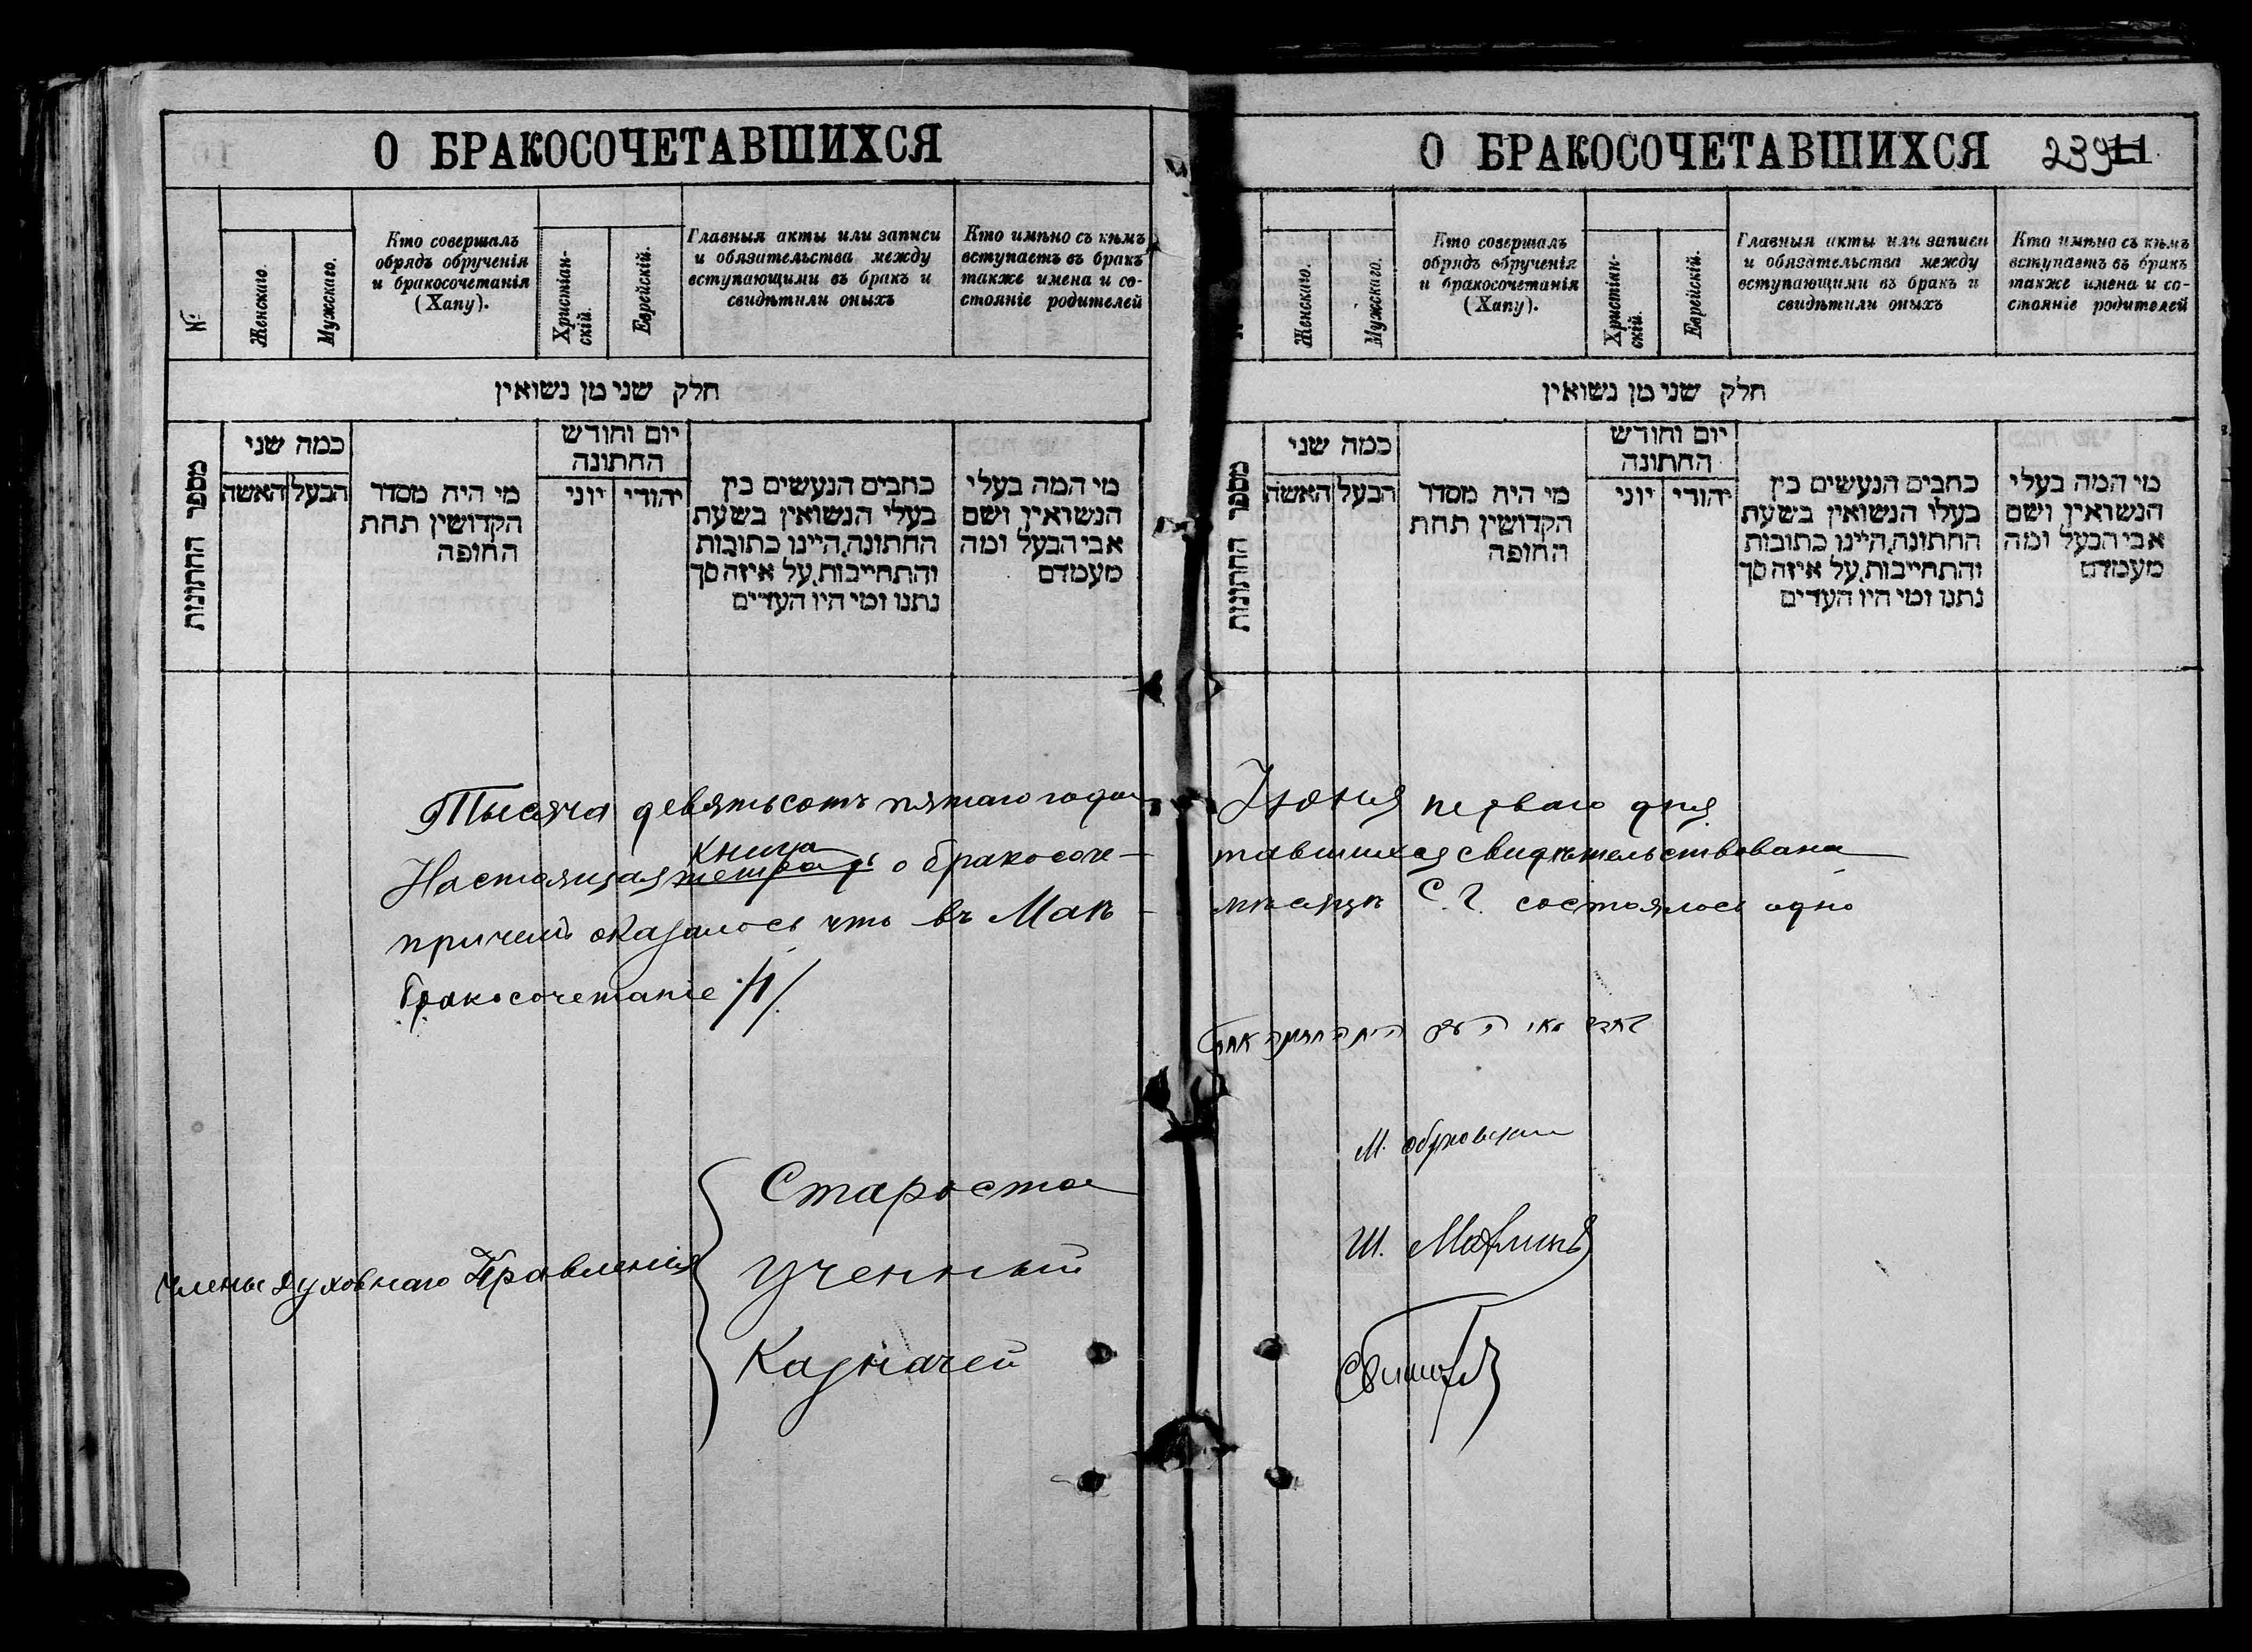 О БРАКОСОЧЕТАВШИХСЯ
№
Женскаго.
Мужскаго.
Кто совершалъ
обрядъ обрученія
и бракосочетанія
(Хапу).
Христіан-
скій.
Еврейскій.
Главныя акты или записи
и обязательства между
вступающими въ бракъ и
свидѣтили оныхъ
Кто имѣно съ кѣмъ
вступаетъ въ бракъ
также имена и со-
стояніе родителей
חלק שני מן נשואין
מספר החתונות
כמה שני
האשה
הבעל
מי היה מסדר
הקדושין תחת
החופה
יום וחודש
החתונה
יוני
יהודי
כתבים הנעשים בין
בעלי הנשואין בשעת
החתונה, היינו כתובות
והתחייבות, על איזה סך
נתנו ומי היו העדים
מי המה בעלי
הנשואין ושם
אבי הבעל ומה
מעמדם
О БРАКОСОЧЕТАВШИХСЯ 239 11.
Женскаго.
Мужскаго.
Кто совершалъ
обрядъ обрученія
и бракосочетанія
(Хапу).
Христіан-
скій.
Еврейскій.
Главныя акты или записи
и обязательства между
вступающими въ бракъ и
свидѣтили оныхъ
Кто имѣно съ кѣмъ
вступаетъ въ бракъ
также имена и со-
стояніе родителей
חלק שני מן נשואין
מספר החתונות
כמה שני
האשה
הבעל
מי היה מסדר
הקדושין תחת
החופה
יום וחודש
החתונה
יוני
יהודי
כתבים הנעשים בין
בעלי הנשואין בשעת
החתונה, היינו כתובות
והתחייבות, על איזה סך
נתנו ומי היו העדים
מי המה בעלי
הנשואין ושם
אבי הבעל ומה
מעמדם
Тысяча девятьсотъ пятаго года Іюня перваго дня
Настоящая тетрадь книга о бракосоче- тавшихся свидѣтельствована
причемъ оказалось что въ Маѣ - мѣсяцѣ С.Г. состоялось одно
бракосочетаніе /1/.
Члены Духовнаго Правленія
Староста
М.
Ученный
Ш.
Казначей